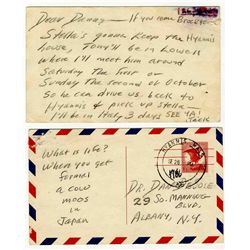 Dear Danny — If you come
Stella's gonna keep the Hyannis
house, Tony'll be in Lowell
where I'll meet him around
Saturday the first or
Sunday the second of October
so he can drive us back to
Hyannis & pick up Stella —
I'll be in Italy 3 days SEE YA!
Jack
What is life?
When you get
formei
a cow
moos
in
Japan
HYANNIS
DR. DAN
29 So. MANNING
BLVD,
ALBANY, N.Y.